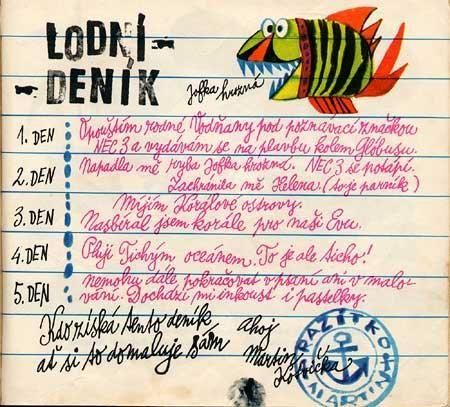 LODNÍ-
-DENÍK
Jofka hrozná
1. DEN Opouštím rodné Vodňany pod poznávací značkou
NEC 3 a vydávám se na plavbu kolem Glóbusu.
2. DEN Napadla mě ryba Jofka hrozná. NEC 3 se potápí.
Zachránila mě Helena. (to je parník)
3. DEN Míjím Korálové ostrovy.
Nasbíral jsem korále pro naši Evu.
4. DEN Pluji Tichým oceánem. To je ale ticho!
5. DEN nemohu dále pokračovat v psaní ani v malo-
vání. Dochází mi inkoust i pastelky.
Kdo získá tento deník
ať si to domaluje sám
ahoj
Martin
Kotvička
RAZÍTKO
MARTIN